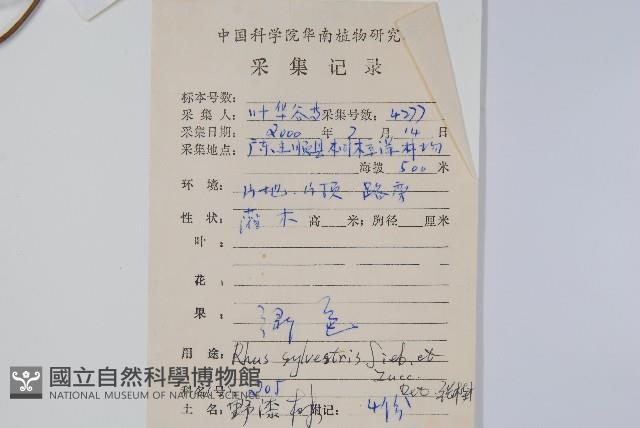 中国科学院华南植物研究
采集记录
标本号数:
采集人: 叶华谷 采集号数: 4277
采集日期: 2000 年 7 月 14 日
采集地点: 广东
海拔 500 米
环境: 路旁
性状: 灌木 高 米; 胸径 厘米
叶:
花:
果: 色
用途: Rhus sylvestris Sieb. et
Zucc.
科名(号) 205 Det.
土名: 野漆树 附记: 4份
國立自然科學博物館
NATIONAL MUSEUM OF NATURAL SCIENCE